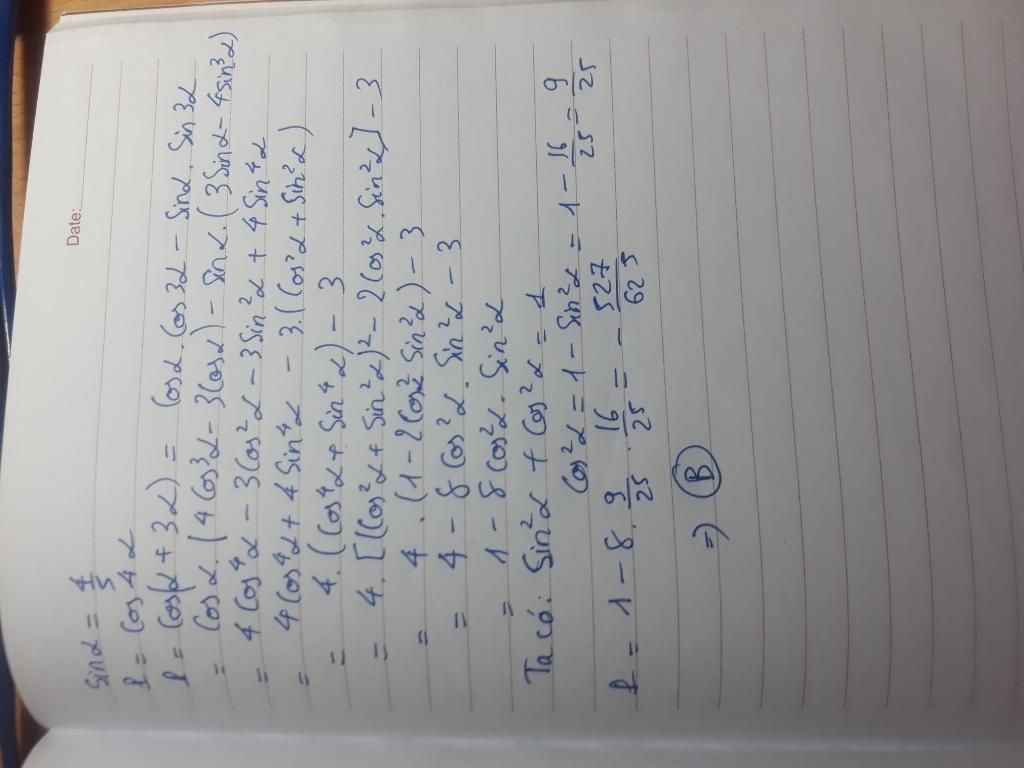 Date:
Sinα = 4/5
P = Cos4α
P = Cos(α + 3α) = Cosα.Cos3α - Sinα.Sin3α
= Cosα.(4Cos³α - 3Cosα) - Sinα.(3Sinα - 4Sin³α)
= 4Cos⁴α - 3Cos²α - 3Sin²α + 4Sin⁴α
= 4Cos⁴α + 4Sin⁴α - 3.(Cos²α + Sin²α)
= 4.(Cos⁴α + Sin⁴α) - 3
= 4.[(Cos²α + Sin²α)² - 2(Cos²α.Sin²α] - 3
= 4.(1 - 2Cos²α Sin²α) - 3
= 4 - 8Cos²α.Sin²α - 3
= 1 - 8Cos²α.Sin²α
Ta có: Sin²α + Cos²α = 1
Cos²α = 1 - Sin²α = 1 - 16/25 = 9/25
P = 1 - 8.9/25.16/25 = -527/625
=> B